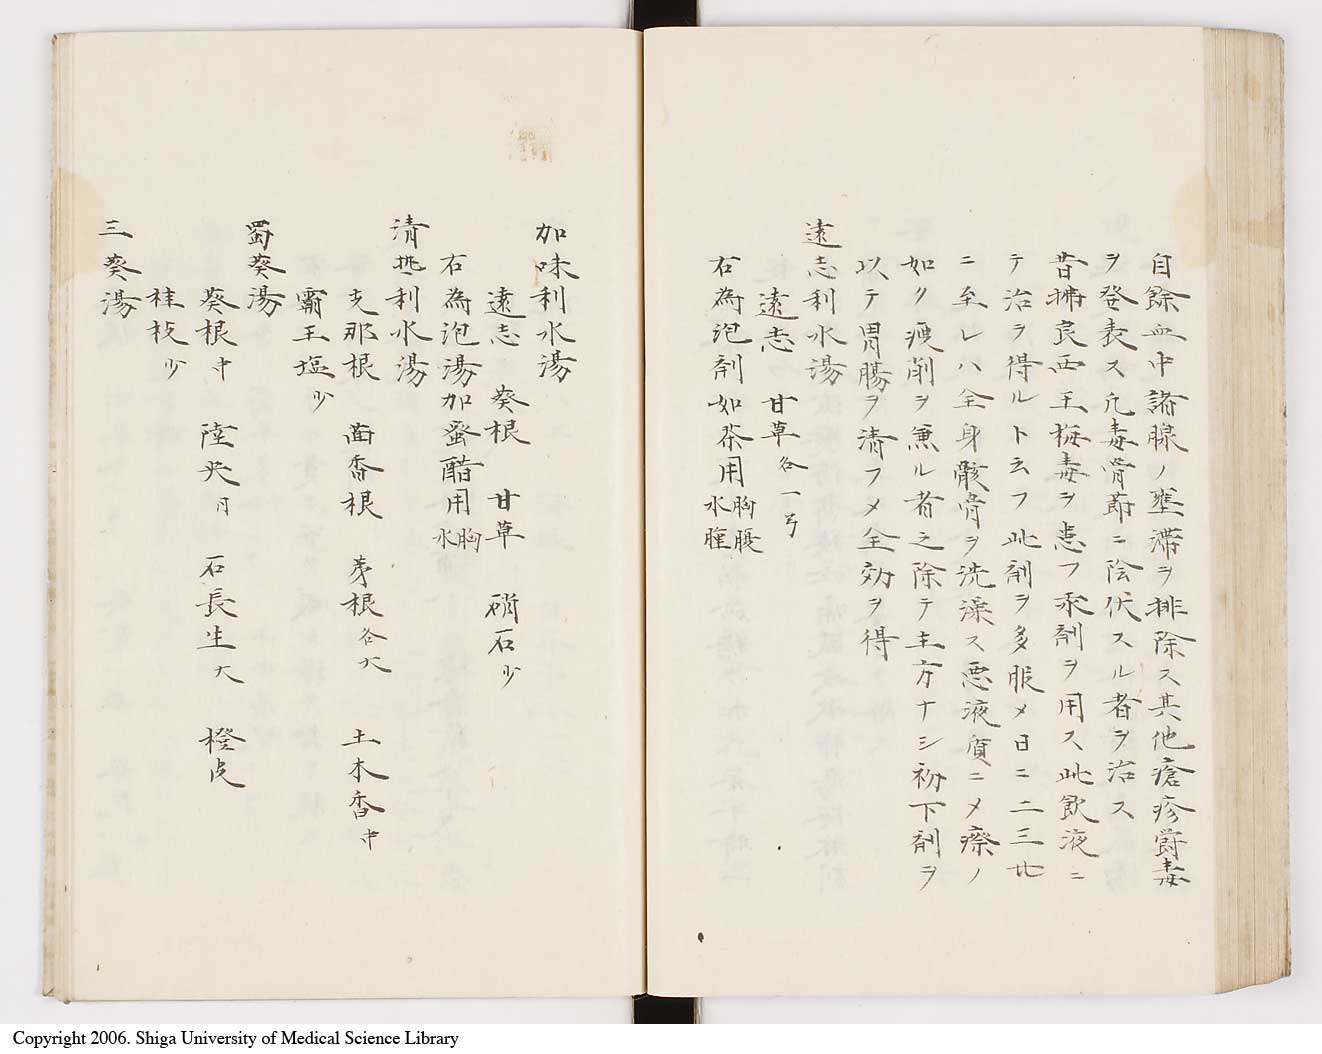 自餘血中諸腺ノ壅滞ヲ排除ス其他瘡疹欝毒
ヲ發表ス凢毒骨節ニ陰伏スル者ヲ治ス
昔拂良西王梅毒ヲ患フ汞剤ヲ用ス此飲液ニ
テ治ヲ得ルト云フ此剤ヲ多服メ日ニ二三
ニ至レハ全身骸骨ヲ洗澡ス悪液質ニメ瘵ノ
如ク痩削ヲ兼ル者之除テ主方ナシ初下剤ヲ
以テ胃腸ヲ清フメ全効ヲ得
遠志利水湯
遠志 甘草各一弓
右為泡剤如茶用胸腹
水腫
加味利水湯
遠志 葵根 甘草 硝石少
右為泡湯加蚤醋用胸
水
清 利水湯
支那根 茴香根 茅根各大 土木香中
霸王塩少
蜀葵湯
葵根中 陸英月 石長生大 橙皮
桂枝少
三葵湯
Copyright 2006. Shiga University of Medical Science Library